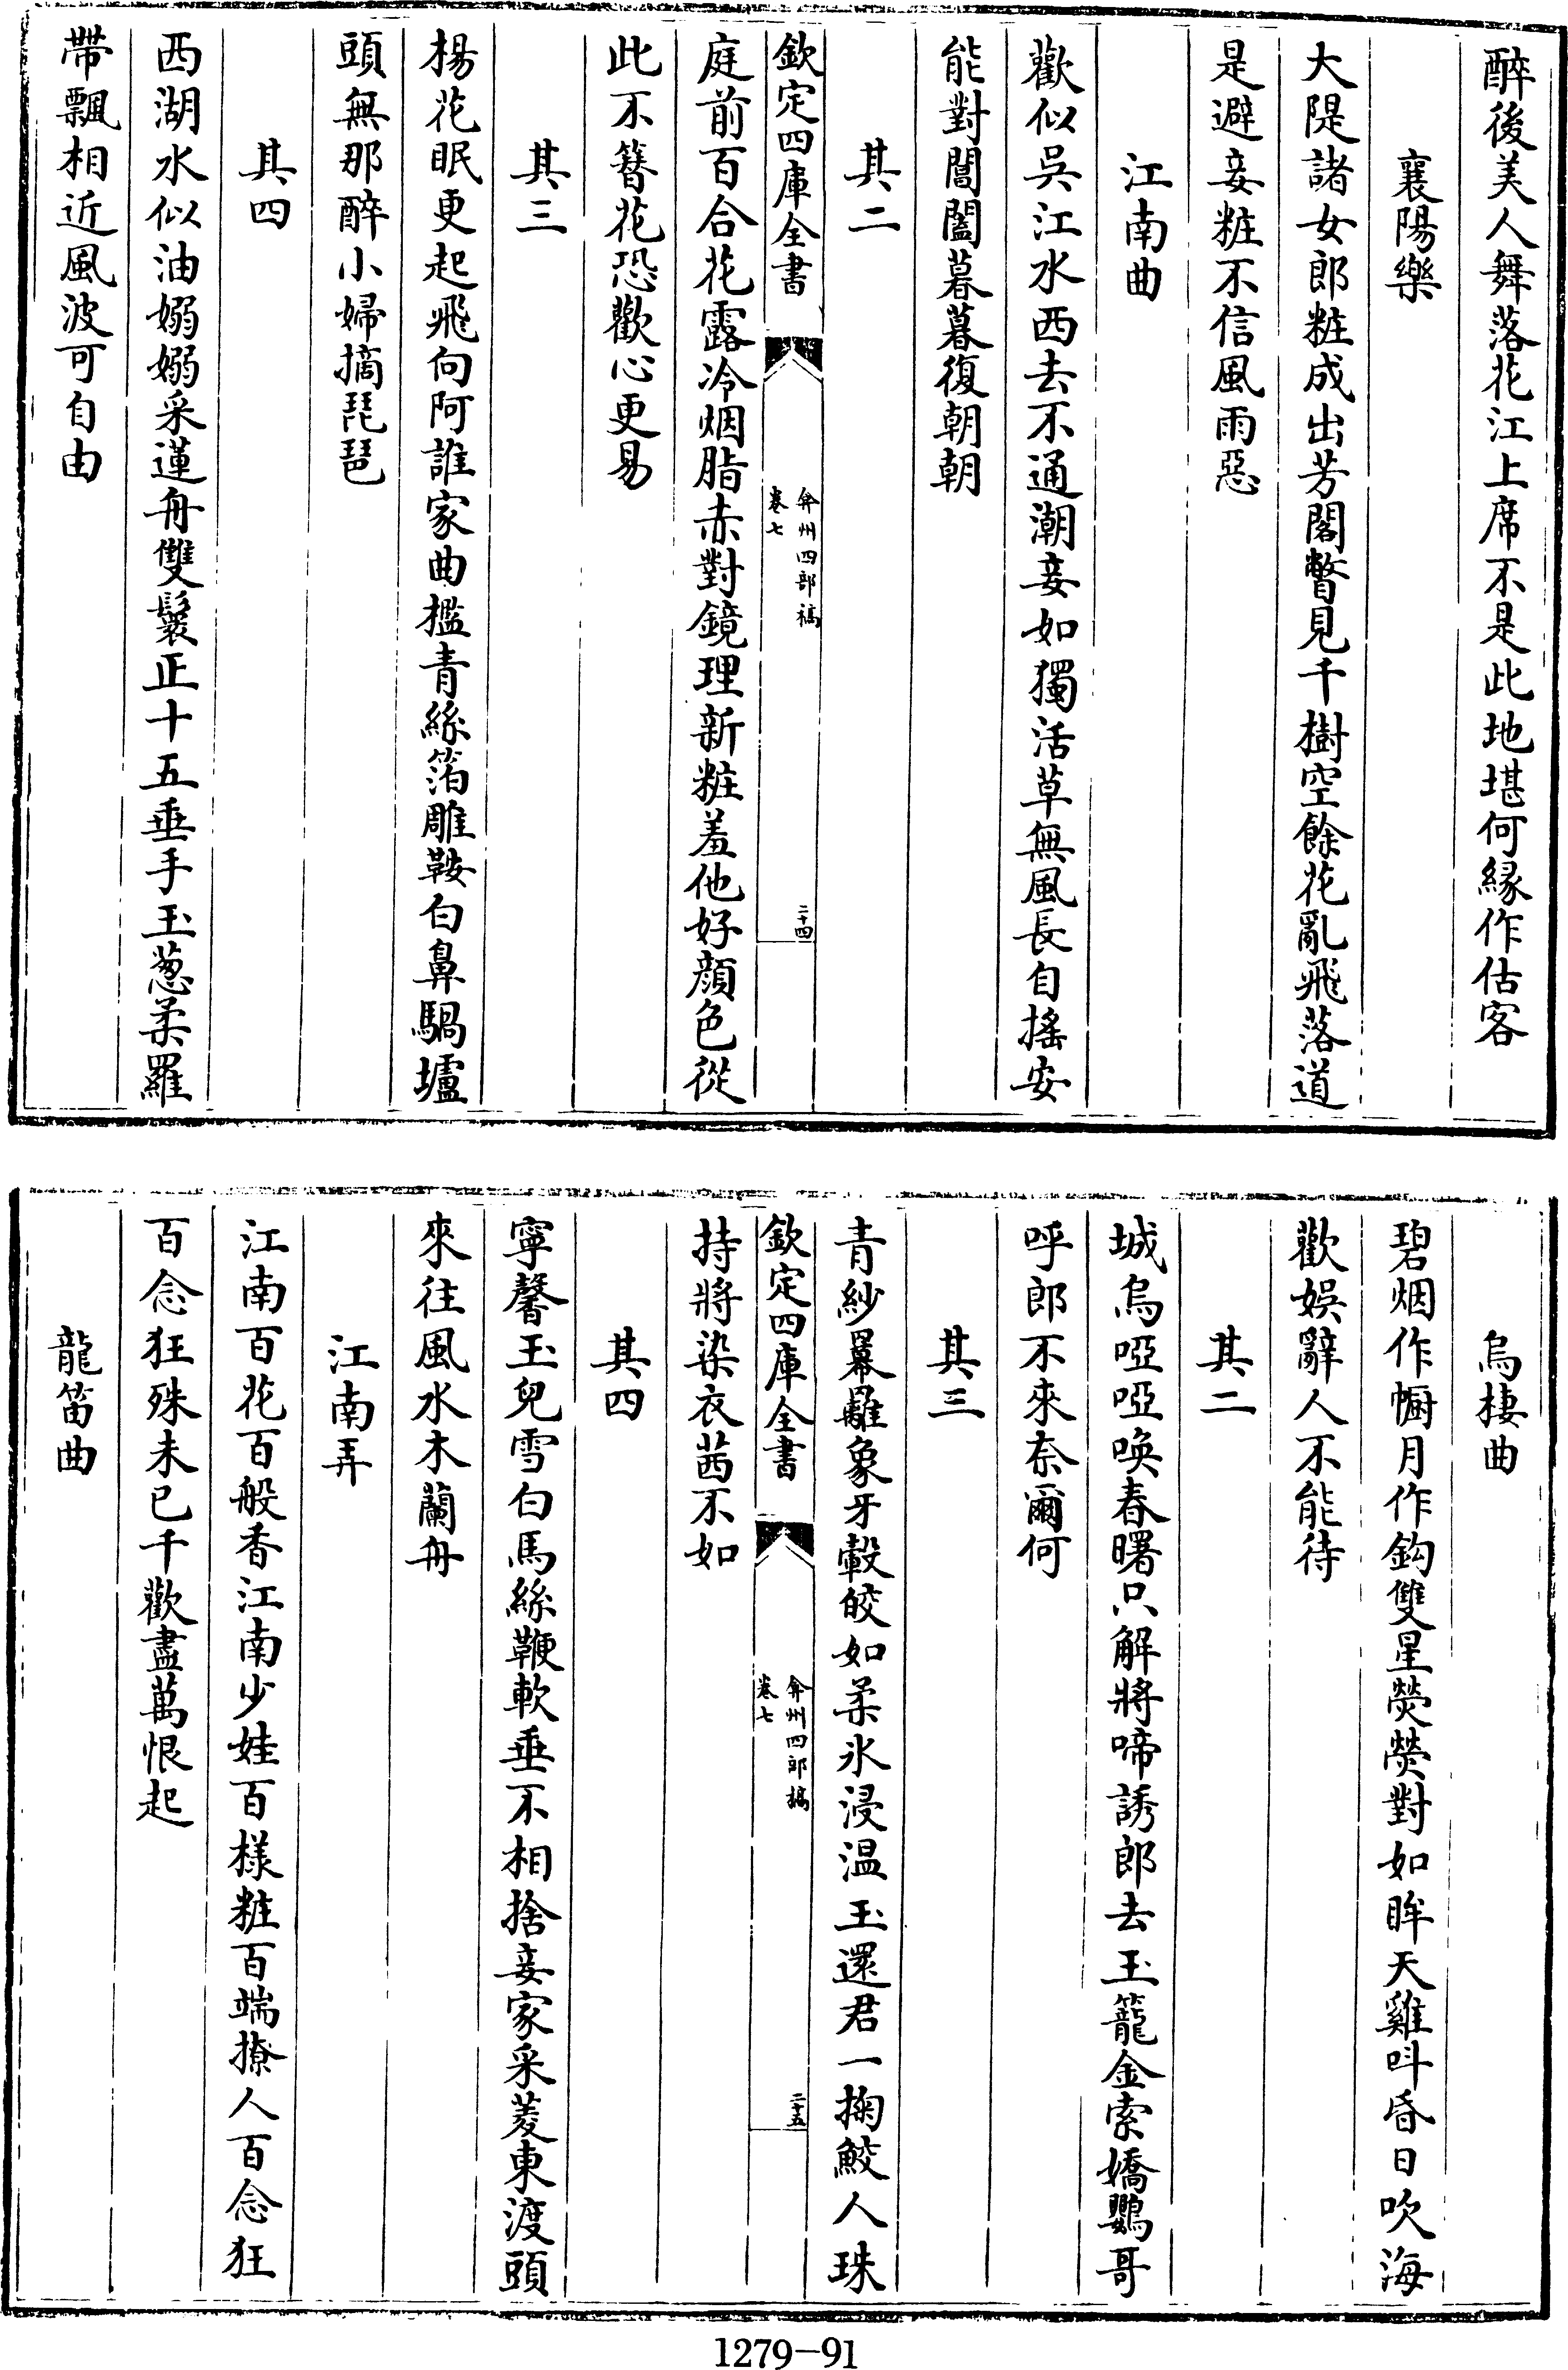 醉後美人舞落花江上席不是此地堪何緣作估客
襄陽樂
大隄諸女郎粧成出芳閣瞥見千樹空餘花亂飛落道
是避妾粧不信風雨惡
江南曲
歡似吳江水西去不通潮妾如獨活草無風長自搖安
能對閶闔暮暮復朝朝
其二
欽定四庫全書
弇州四部稿
卷七
二十四
庭前百合花露冷烟脂赤對鏡理新粧羞他好顔色從
此不簪花恐歡心更易
其三
楊花眠更起飛向阿誰家曲檻青絲箔雕鞍白鼻騧壚
頭無那醉小婦摘琵琶
其四
西湖水似油嫋嫋采蓮舟雙鬟正十五垂手玉葱柔羅
帶飄相近風波可自由
烏棲曲
碧烟作㡡月作鈎雙星熒熒對如眸天雞呌昏日吹海
歡娛辭人不能待
其二
城烏啞啞喚春曙只解將啼誘郎去玉籠金索嬌鸚哥
呼郎不來奈爾何
其三
青紗冪䍦象牙轂皎如柔氷浸温玉還君一掬鮫人珠
欽定四庫全書
弇州四部稿
卷七
二十五
持將染衣茜不如
其四
寧馨玉兒雪白馬絲鞭軟垂不相捨妾家采菱東渡頭
來往風水木蘭舟
江南弄
江南百花百般香江南少娃百樣粧百端撩人百念狂
百念狂殊未已千歡盡萬恨起
龍笛曲
1279-91